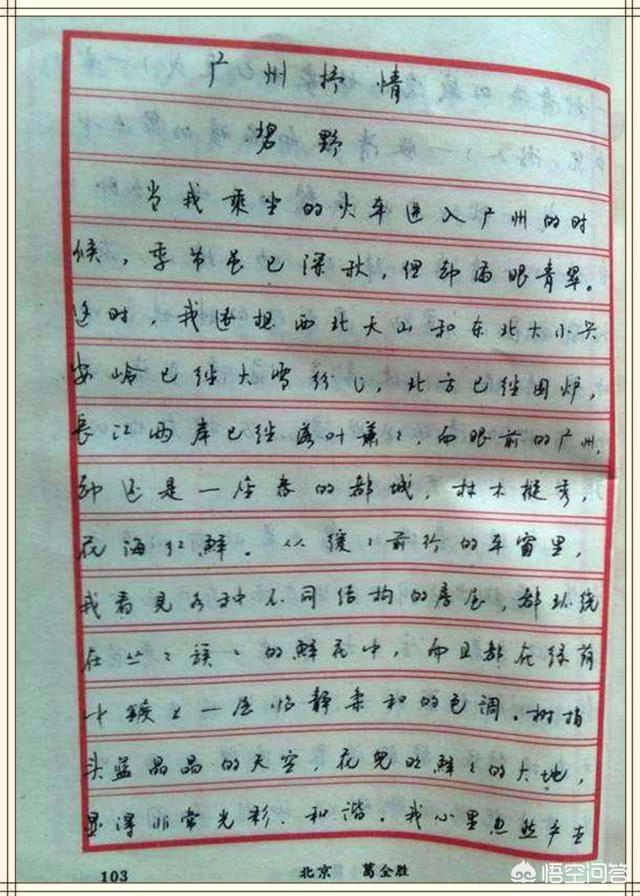 广州抒情
碧野
当我乘坐的火车进入广州的时
候，季节虽已深秋，但却满眼青翠。
这时，我遥想西北天山和东北大小兴
安岭已经大雪纷纷，北方已经围炉，
长江两岸已经落叶萧萧，而眼前的广州，
却还是一座春的都城，林木挺秀，
花海红鲜。从缓缓前行的车窗里，
我看见各种不同结构的房屋，都环绕
在丛丛簇簇的鲜花中，而且都在绿荫
中缀上一层恬静柔和的色调。树梢
头蓝晶晶的天空，花儿的鲜鲜的大地，
显得非常光彩、和谐。我心里忽然产生
103 北京 葛全胜
悟空问答